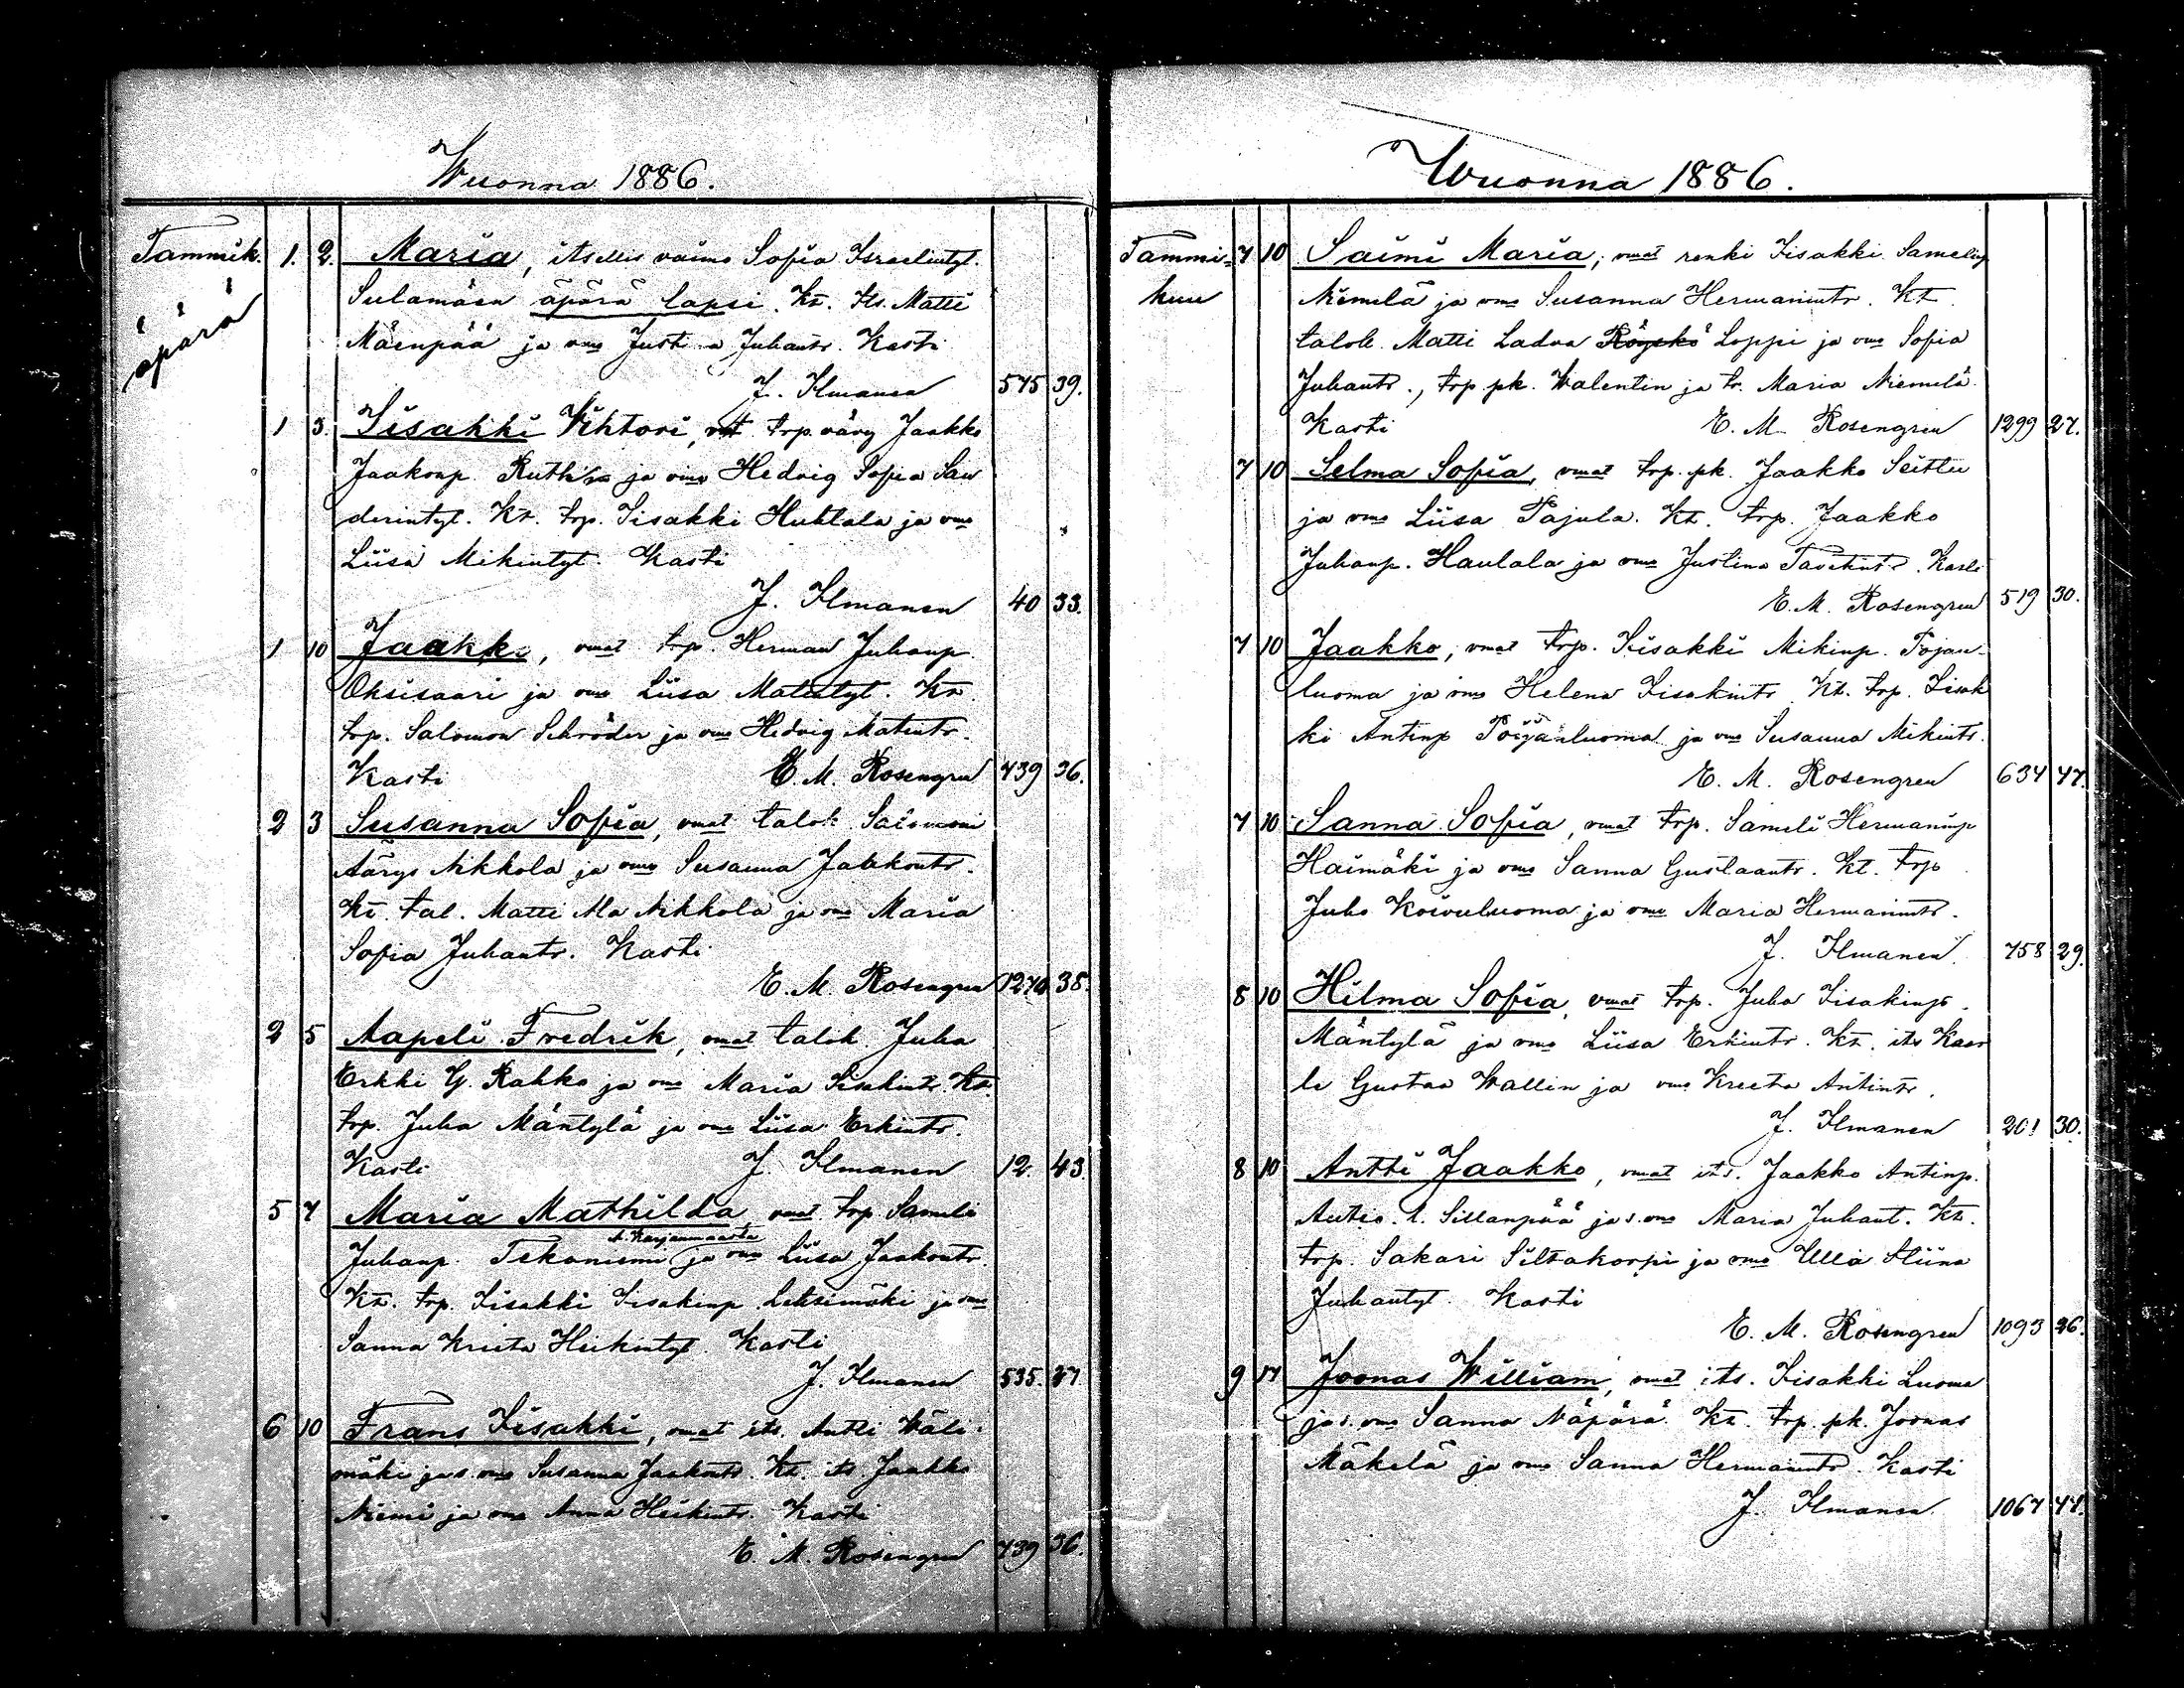 Wuonna 1886.
Tammik. 1. 2. Maria, itsellis vaimo Sofia Israelintyt.
äpärä
Sulamäen äpärä lapsi. Kt. Its. Matti
Mäenpää ja vmo Justina Juhantr. Kasti
J. Ilmanen 575 39.
1 3. Iisakki Vihtori, vmt trp. väny Jaakko
Jaakonp. Ruthin ja vmo Hedvig Sofia San
derintyt. Kt. trp. Iisakki Huhtala ja vmo
Liisa Mikintyt. Kasti
J. Ilmanen 40 33.
1 10 Jaakko, vmat trp. Herman Juhanp.
Oksisaari ja vmo Liisa Matintyt. Kt.
trp. Salomon Schröder ja vmo Hedvig Matintr.
Kasti E. M. Rosengren 739 36.
2 3 Susanna Sofia, vmat talok. Salomon
Äärys Nikkola ja vmo Susanna Jaakontr.
Kt. tal. Matti Ala Nikkola ja vmo Maria
Sofia Juhantr. Kasti
E. M. Rosengren 1270 38.
2 5 Aapeli Fredrik, vmat talok. Juha
Erkki G. Rahko ja vmo Maria Iisakintr. Kt.
trp. Juha Mäntylä ja vmo Liisa Erkintr.
Kasti J. Ilmanen 12. 43.
5 7 Maria Mathilda vmat. trp Sameli
Juhanp. Tekoniemi ja vmo Liisa Jaakontr.
Kt. trp. Iisakki Iisakinp. Lehsimäki ja vmo
Sanna Kreeta Heikintyt. Kasti
J. Ilmanen 535. 27
6 10 Frans Iisakki, vmat its. Antti Wäli-
mäki ja s. vmo Susanna Jaakontr. Kt. its Jaakko
Niemi ja vmo Anna Heikintr. Kasti
E. M. Rosengren 739 36.
Wuonna 1886.
Tammi- 7 10 Saimi Maria, vmat renki Iisakki Samelinp
kuu Niemelä ja vmo Susanna Hermanintr. Kt.
talok. Matti Ladva Röyskö Loppi ja vmo Sofia
Juhantr., trp. pk. Walentin ja tr. Maria Niemelä.
Kasti E. M. Rosengren 1299 27.
7 10 Selma Sofia, vmat trp. pk. Jaakko Seittu
ja vmo Liisa Pajula. Kt. trp. Jaakko
Juhanp. Hautala ja vmo Justina Tavetintr. Kasti
E. M. Rosengren 519 30.
7 10 Jaakko, vmat trp. Iisakki Mikinp. Pojan-
luoma ja vmo Helena Iisakintr. Kt. trp. Iisak
ki Antinp Pöyjänluoma ja vmo Susanna Mikintr.
E. M. Rosengren 634 47.
7 10 Sanna Sofia, vmat trp. Sameli Hermaninp
Haimäki ja vmo Sanna Gustaantr. Kt. trp
Juho Koivuluoma ja vmo Maria Hermanintr.
J. Ilmanen 758 29.
8 10 Hilma Sofia, vmat trp. Juha Iisakinp.
Mäntylä ja vmo Liisa Erkintr. Kt. its Kaar
le Gustaa Wallin ja vmo Kreeta Antintr.
J. Ilmanen 201 30.
8 10 Antti Jaakko, vmat its. Jaakko Antinp.
Autio. l. Sillanpää ja s. vmo Maria Juhant. Kt.
trp. Sakari Siltakorpi ja vmo Ulla Stiina
Juhantyt. Kasti
E. M. Rosengren 1093 26.
9 17 Joonas William, vmat its. Iisakki Luoma
ja s. vmo Sanna Näpärä. Kt. trp. pk. Joonas
Mäkelä ja vmo Sanna Hermanintr. Kasti
J. Ilmanen 1067 47.